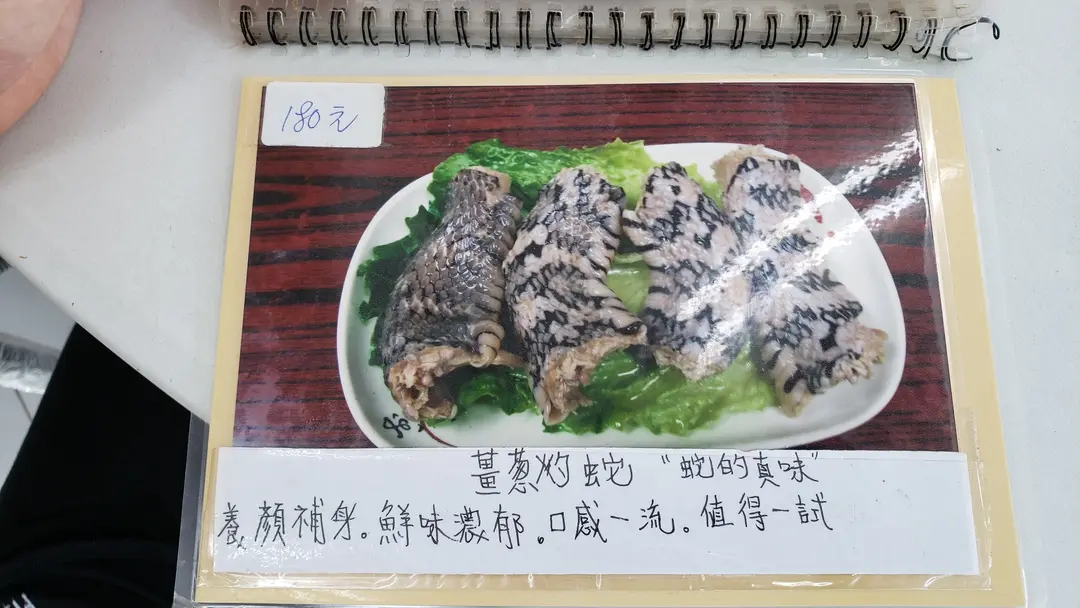 180元
薑蔥灼蛇 “蛇的真味”
養顏補身。鮮味濃郁。口感一流。值得一試